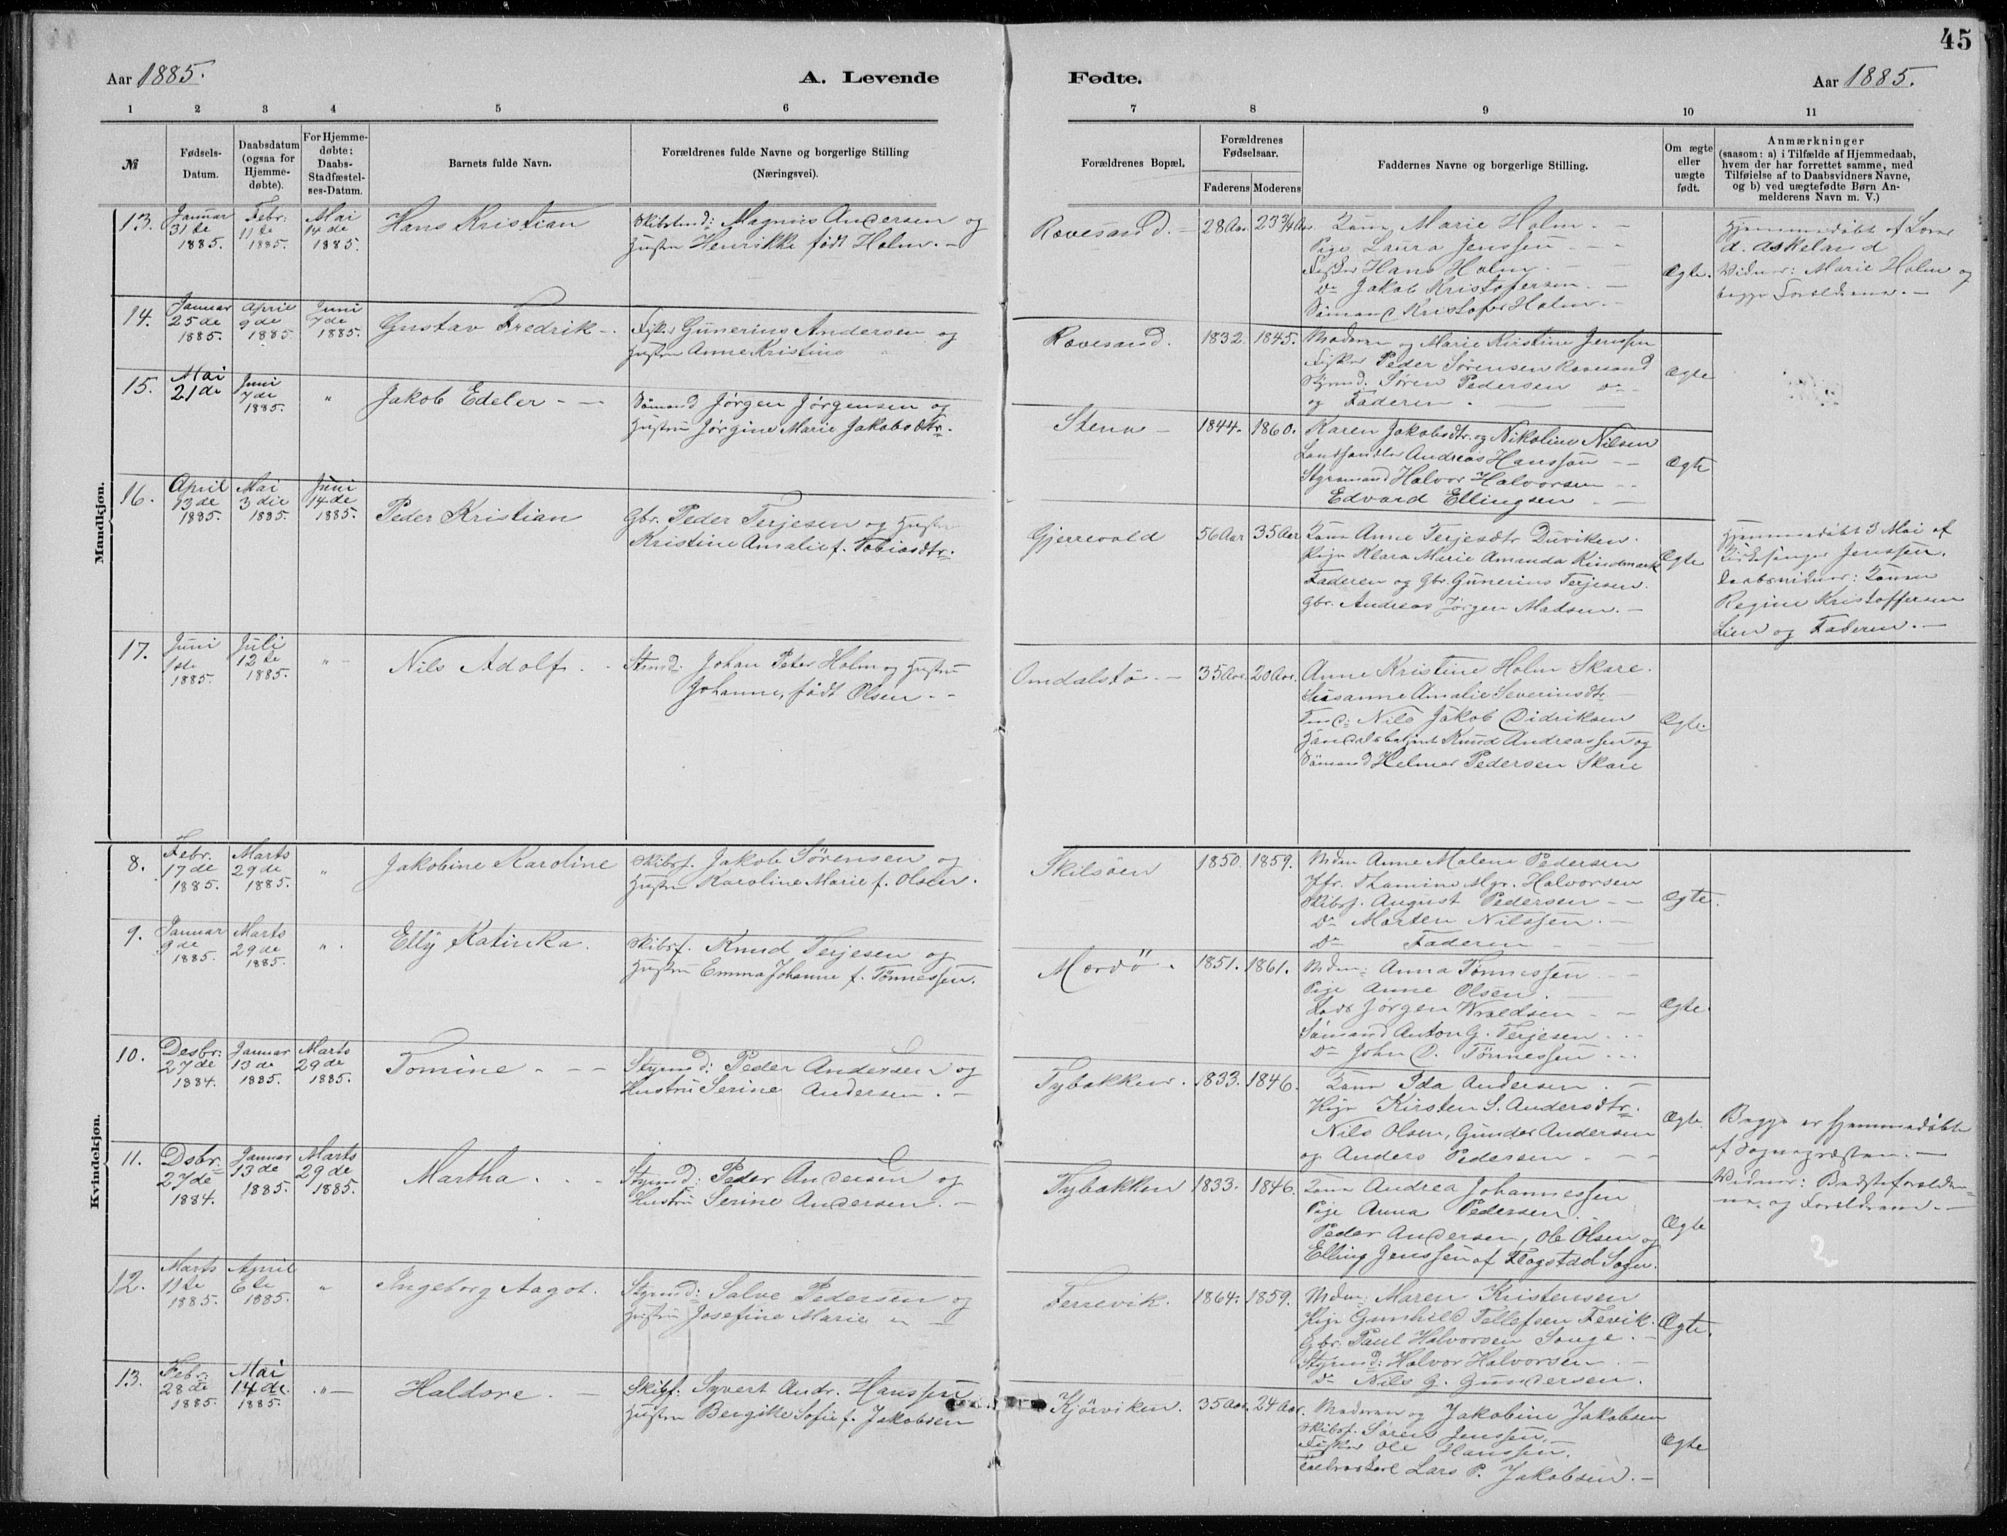 45
Aar 1885.
A. Levende
Fødte.
Aar 1885.
1 2 3 4 5 6 7 8 9 10 11
№
Fødsels-
Datum.
Daabsdatum
(ogsaa for
Hjemme-
døbte).
For Hjemme-
døbte:
Daabs-
Stadfæstel-
ses-Datum.
Barnets fulde Navn.
Forældrenes fulde Navne og borgerlige Stilling
(Næringsvei).
Forældrenes Bopæl.
Forældrenes
Fødselsaar.
Faderens Moderens
Faddernes Navne og borgerlige Stilling.
Om ægte
eller
uægte
født.
Anmærkninger
(saasom: a) i Tilfælde af Hjemmedaab,
hvem der har forrettet samme, med
Tilføielse af to Daabsvidners Navne,
og b) ved uægtefødte Børn An-
melderens Navn m. V.)
Mandkjøn.
13.
Januar
31te
1885.
Febr:
11te
1885.
Mai
14de
1885.
Hans Kristian
Magnus Andersen og
Hustru Henrikke født Holm. –
Rævesand. –
28 Aar
23 3/4 Aar
Kone Marie Holm. –
Pige Laura Jenssen – –
Fisker Hans Holm. –
Do Jakob Kristofersen. –
Sømand Kristofer Holm. –
Ægte.
Hjemmedøbt af
Askeland
Vidner: Marie Holm og
begge Forældrene. –
14.
Januar
25de
1885.
April
9de
1885.
Juni
7de
1885.
Gustav Fredrik –
Fisker Gunerius Andersen og
Hustru Anne Kristine "
Rævesand.
1832.
1845.
Moderen og Marie Kristine Jenssen
Fisker Peder Sørensen Rævesand
Styrmd. Søren Pedersen do –
og Faderen. –
Ægte
15.
Mai
21de
Juni
7de
1885.
"
Jakob Edeler – –
Sømand Jørgen Jørgensen og
Hustru Jørgine Marie Jakobsdtr.
Stena –
1844.
1860.
Karen Jakobsdtr. og Nikoline Nilsen
Landhandler Andreas Hanssøn – –
Styrmand Halvor Halvorsen – –
Edvard Ellingsen – –
Ægte
16.
April
13de
1885.
Mai
3die
1885.
Juni
14de
1885.
Peder Kristian
Gbr. Peder Terjesen og Hustru
Kristine Amalie f. Tobiasdtr.
Gjerrevold
56 Aar
35 Aar
Kone Anne Terjesdtr Duviken.
Pige Klara Marie Amanda Kindmark
Faderen og Gbr. Gunerius Terjesen.
Gbr. Andreas Jørgen Madsen. –
Ægte
Hjemmedøbt 3 Mai af
Kirkesanger Jenssen.
Daabsvidner: Konen
Regine Kristoffersen
Lien og Faderen. –
17.
Juni
1ste
1885.
Juli
12te
1885.
" –
Nils Adolf. –
Johan Peter Holm og Hustru
Johanne, født Olsen. –
Omdalstø. –
35 Aar.
20 Aar.
Anne Kristine Holm Skare.
Susanne Amalie Severinsdtr –
Nils Jakob Didriksen
Knud Andreassen og
Sømand Helmer Pedersen Skare
Ægte.
Kvindekjøn.
8.
Febr.
17de
1885.
Marts
29de
1885.
"
Jakobine Karoline
Skibsf. Jakob Sørensen og
Hustru Karoline Marie f. Olsen.
Skilsøen
1850.
1859.
Mdm Anne Malene Pedersen
Jfr. Thomine Mgr. Halvorsen
Skibsf. August Pedersen – –
Do Morten Nilssen. –
Do Faderen –
Ægte.
9.
Januar
9de
1885.
Marts
29de
1885.
"
Elly Katinka.
Skibsf. Knud Terjesen og
Hustru Emma Johanne f. Tønnessen.
Merdø.
1851.
1861.
Mdm: Anna Tønnessen – –
Pige Anne Olsen. –
Lods Jørgen Wroldsen – –
Sømand Anton G. Terjesen – –
Do John O. Tønnessen – –
Ægte.
10.
Desbr:
27de
1884.
Januar
13de
1885.
Marts
29de
1885.
Tomine – – –
Styrmd: Peder Andersen og
Hustru Serine Andersen. –
Tybakken.
1833.
1846.
Kone Ida Andersen. –
Pige Kirsten S. Andersdtr.
Nils Olsen, Gunder Andersen
og Anders Pedersen – –
Ægte.
Begge er hjemmedøbte
af Sognepræsten. –
Vidner: Bedsteforældre-
ne og Forældrene. –
11.
Dsbr.
27de
1884.
Januar
13de
1885.
Marts
29de
1885.
Martha. – –
Styrmd: Peder Andersen og
Hustru Serine Andersen. –
Tybakken
1833.
1846.
Kone Andrea Johannessen
Pige Anna Pedersen.
Peder Andersen, Ole Olsen og
Elling Jenssen af Flogstad Sogn.
Ægte
2
12.
Marts
11te
1885.
April
6te
1885.
"
Ingeborg Aagot.
Styrmd: Salve Pedersen og
Hustru Josefine Marie " –
Terrevik.
1864.
1859.
Mdm: Maren Kristensen
Pige Gunhild Tellefsen Fevik.
Gbr. Paul Halvorsen Songe. –
Styrmd: Halvor Halvorsen. –
Do Nils G. Gundersen.
Ægte.
13.
Febr:
28de
1885.
Mai
14de.
1885.
" –
Haldore. –
Skibf: Syvert Andr. Hanssen
Hustru Bergitte Sofie f. Jakobsen
Kjørviken.
35 Aar.
24 Aar.
Moderen og Jakobine Jakobsen
Skibsf. Søren Jenssen.
Fisker Ole Hanssen.
Lars P. Jakobsen. –
Ægte